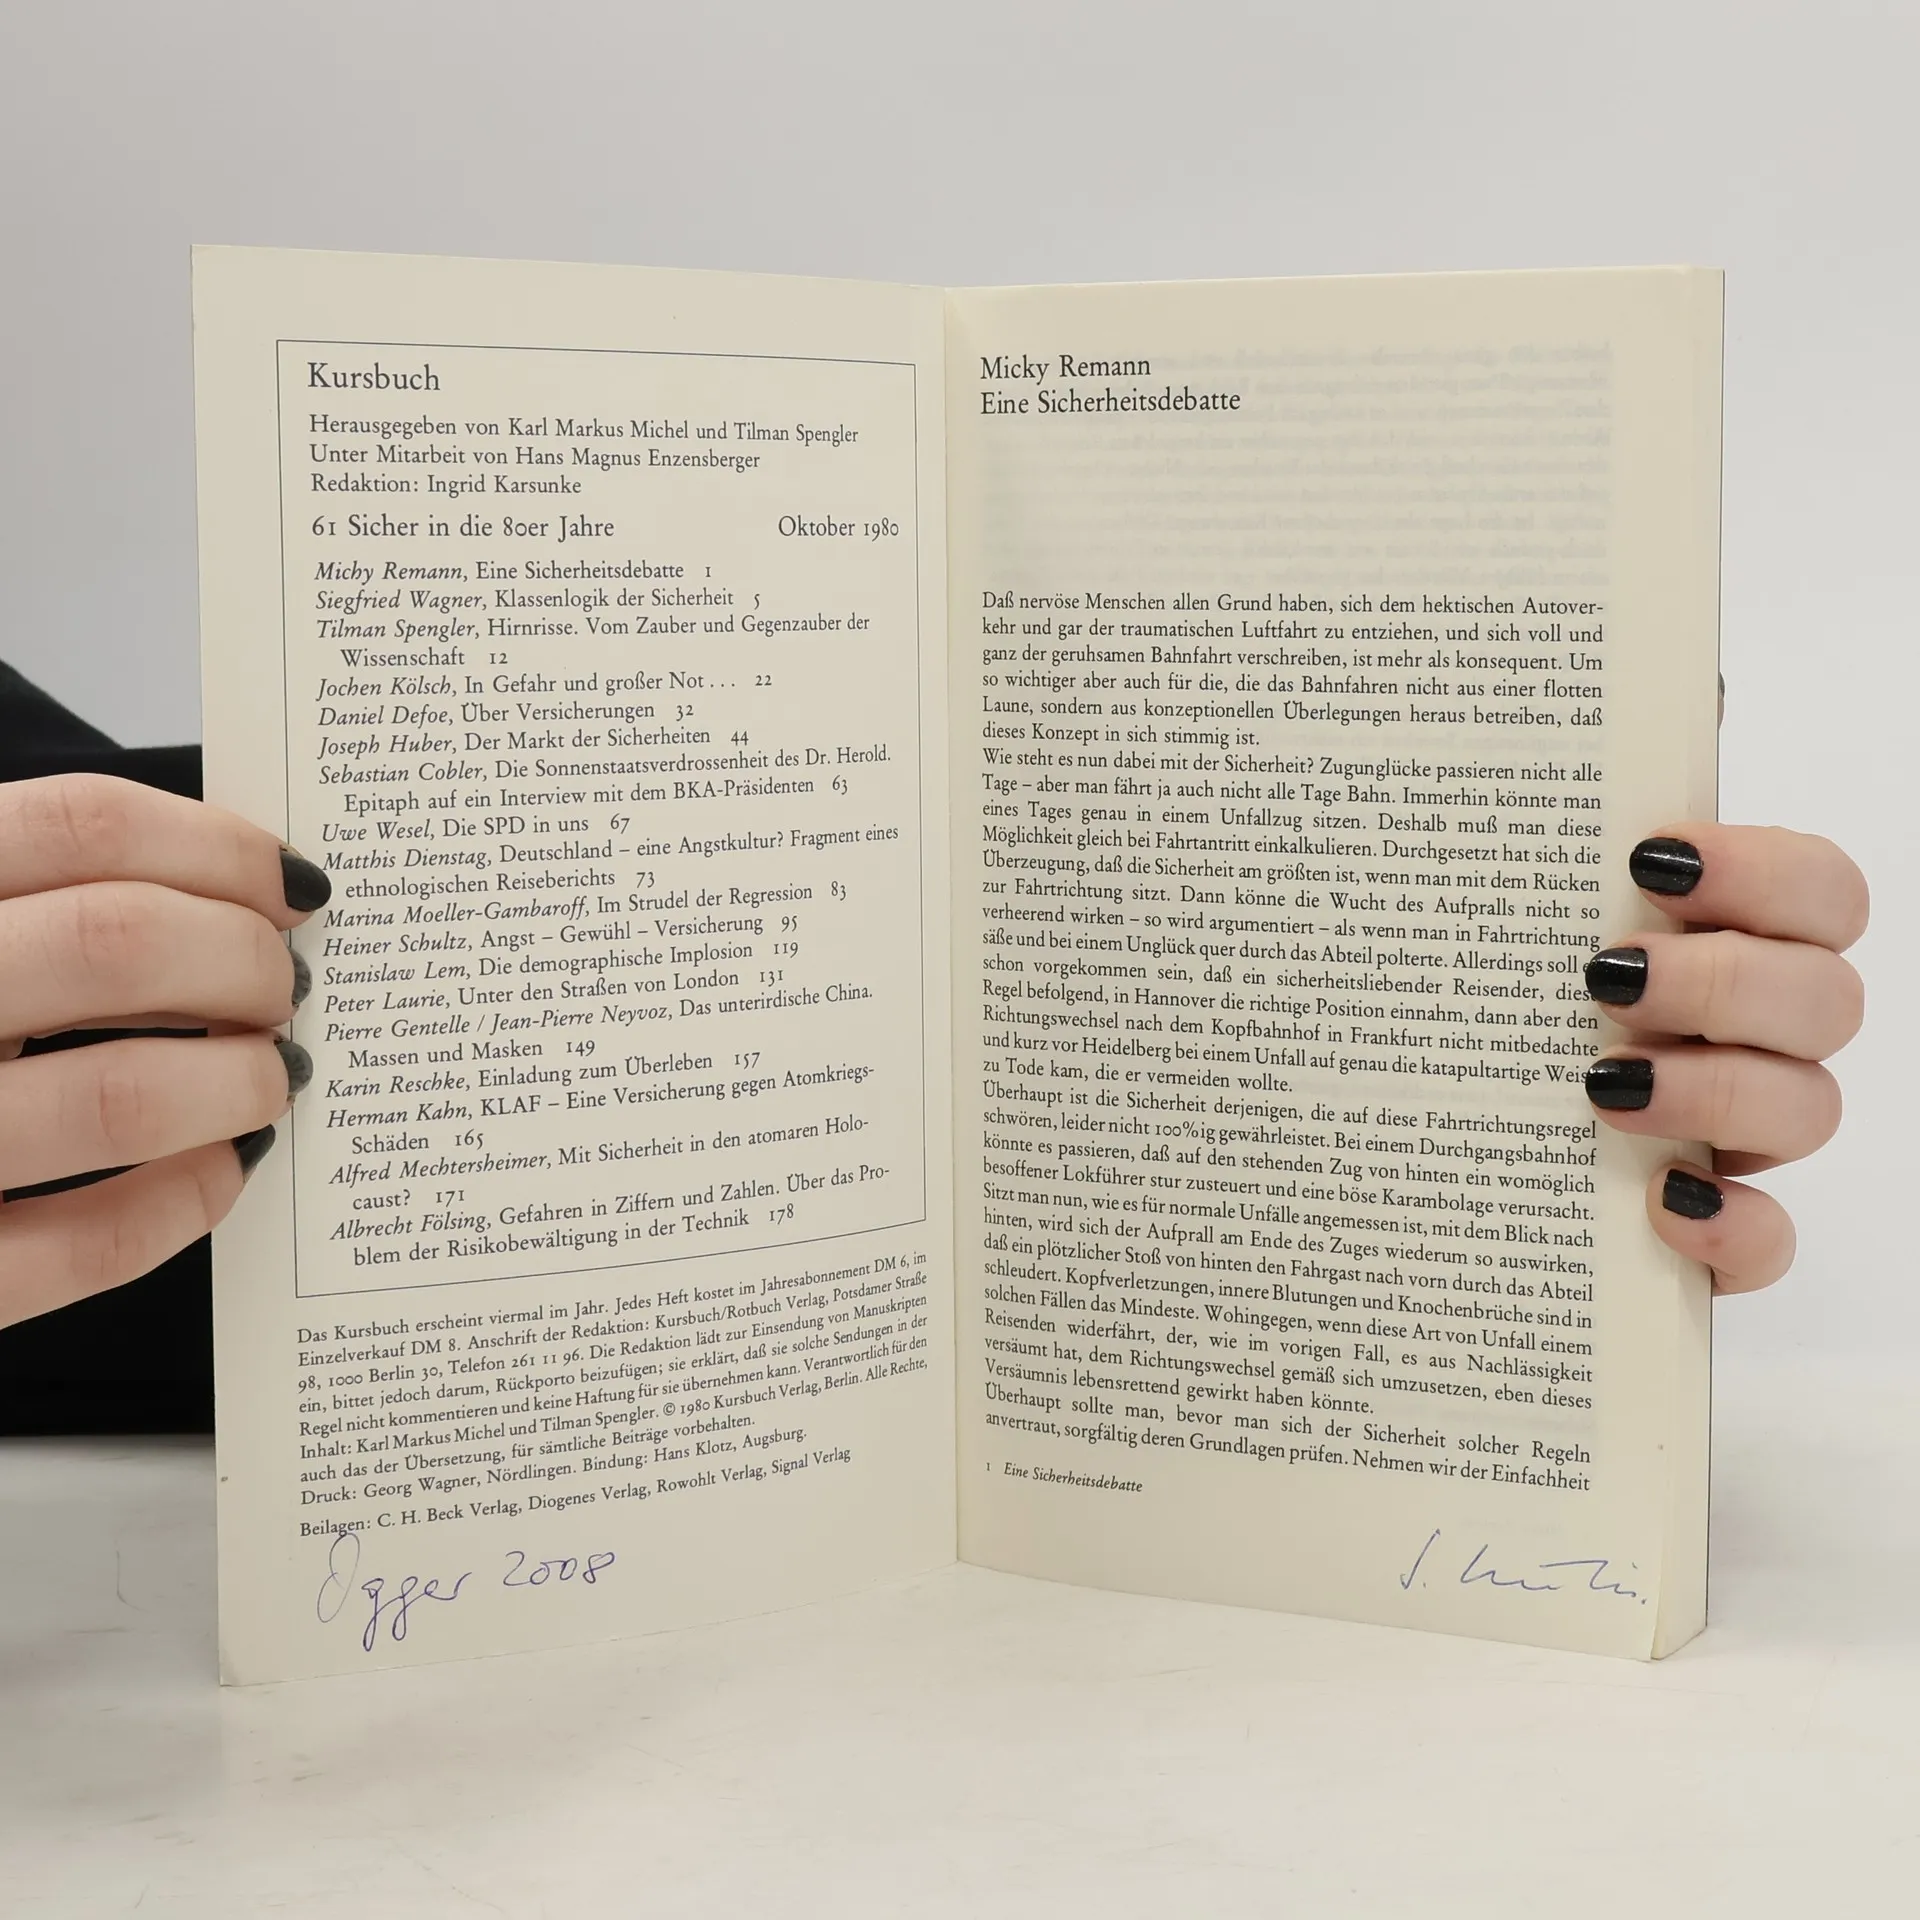 Kursbuch
Herausgegeben von Karl Markus Michel und Tilman Spengler
Unter Mitarbeit von Hans Magnus Enzensberger
Redaktion: Ingrid Karsunke
61 Sicher in die 80er Jahre Oktober 1980
Michy Remann, Eine Sicherheitsdebatte 1
Siegfried Wagner, Klassenlogik der Sicherheit 5
Tilman Spengler, Hirnrisse. Vom Zauber und Gegenzauber der
Wissenschaft 12
Jochen Kölsch, In Gefahr und großer Not . . . 22
Daniel Defoe, Über Versicherungen 32
Joseph Huber, Der Markt der Sicherheiten 44
Sebastian Cobler, Die Sonnenstaatsverdrossenheit des Dr. Herold.
Epitaph auf ein Interview mit dem BKA-Präsidenten 63
Uwe Wesel, Die SPD in uns 67
Matthis Dienstag, Deutschland – eine Angstkultur? Fragment eines
ethnologischen Reiseberichts 73
Marina Moeller-Gambaroff, Im Strudel der Regression 83
Heiner Schultz, Angst – Gewühl – Versicherung 95
Stanislaw Lem, Die demographische Implosion 119
Peter Laurie, Unter den Straßen von London 131
Pierre Gentelle / Jean-Pierre Neyvoz, Das unterirdische China.
Massen und Masken 149
Karin Reschke, Einladung zum Überleben 157
Herman Kahn, KLAF – Eine Versicherung gegen Atomkriegs-
Schäden 165
Alfred Mechtersheimer, Mit Sicherheit in den atomaren Holo-
caust? 171
Albrecht Fölsing, Gefahren in Ziffern und Zahlen. Über das Pro-
blem der Risikobewältigung in der Technik 178
Das Kursbuch erscheint viermal im Jahr. Jedes Heft kostet im Jahresabonnement DM 6, im
Einzelverkauf DM 8. Anschrift der Redaktion: Kursbuch/Rotbuch Verlag, Potsdamer Straße
98, 1000 Berlin 30, Telefon 261 11 96. Die Redaktion lädt zur Einsendung von Manuskripten
ein, bittet jedoch darum, Rückporto beizufügen; sie erklärt, daß sie solche Sendungen in der
Regel nicht kommentieren und keine Haftung für sie übernehmen kann. Verantwortlich für den
Inhalt: Karl Markus Michel und Tilman Spengler. © 1980 Kursbuch Verlag, Berlin. Alle Rechte,
auch das der Übersetzung, für sämtliche Beiträge vorbehalten.
Druck: Georg Wagner, Nördlingen. Bindung: Hans Klotz, Augsburg.
Beilagen: C. H. Beck Verlag, Diogenes Verlag, Rowohlt Verlag, Signal Verlag
Ogger 2008
Micky Remann
Eine Sicherheitsdebatte
Daß nervöse Menschen allen Grund haben, sich dem hektischen Autover-
kehr und gar der traumatischen Luftfahrt zu entziehen, und sich voll und
ganz der geruhsamen Bahnfahrt verschreiben, ist mehr als konsequent. Um
so wichtiger aber auch für die, die das Bahnfahren nicht aus einer flotten
Laune, sondern aus konzeptionellen Überlegungen heraus betreiben, daß
dieses Konzept in sich stimmig ist.
Wie steht es nun dabei mit der Sicherheit? Zugunglücke passieren nicht alle
Tage – aber man fährt ja auch nicht alle Tage Bahn. Immerhin könnte man
eines Tages genau in einem Unfallzug sitzen. Deshalb muß man diese
Möglichkeit gleich bei Fahrtantritt einkalkulieren. Durchgesetzt hat sich die
Überzeugung, daß die Sicherheit am größten ist, wenn man mit dem Rücken
zur Fahrtrichtung sitzt. Dann könne die Wucht des Aufpralls nicht so
verheerend wirken – so wird argumentiert – als wenn man in Fahrtrichtung
säße und bei einem Unglück quer durch das Abteil polterte. Allerdings soll
schon vorgekommen sein, daß ein sicherheitsliebender Reisender, diese
Regel befolgend, in Hannover die richtige Position einnahm, dann aber den
Richtungswechsel nach dem Kopfbahnhof in Frankfurt nicht mitbedachte
und kurz vor Heidelberg bei einem Unfall auf genau die katapultartige Weis
zu Tode kam, die er vermeiden wollte.
Überhaupt ist die Sicherheit derjenigen, die auf diese Fahrtrichtungsregel
schwören, leider nicht 100%ig gewährleistet. Bei einem Durchgangsbahnhof
könnte es passieren, daß auf den stehenden Zug von hinten ein womöglich
besoffener Lokführer stur zusteuert und eine böse Karambolage verursacht.
Sitzt man nun, wie es für normale Unfälle angemessen ist, mit dem Blick nach
hinten, wird sich der Aufprall am Ende des Zuges wiederum so auswirken,
daß ein plötzlicher Stoß von hinten den Fahrgast nach vorn durch das Abteil
schleudert. Kopfverletzungen, innere Blutungen und Knochenbrüche sind in
solchen Fällen das Mindeste. Wohingegen, wenn diese Art von Unfall einem
Reisenden widerfährt, der, wie im vorigen Fall, es aus Nachlässigkeit
versäumt hat, dem Richtungswechsel gemäß sich umzusetzen, eben dieses
Versäumnis lebensrettend gewirkt haben könnte.
Überhaupt sollte man, bevor man sich der Sicherheit solcher Regeln
anvertraut, sorgfältig deren Grundlagen prüfen. Nehmen wir der Einfachheit
1 Eine Sicherheitsdebatte